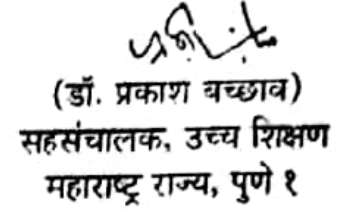 (डॉ. प्रकाश बच्छाव)
सहसंचालक, उच्च शिक्षण
महाराष्ट्र राज्य, पुणे १